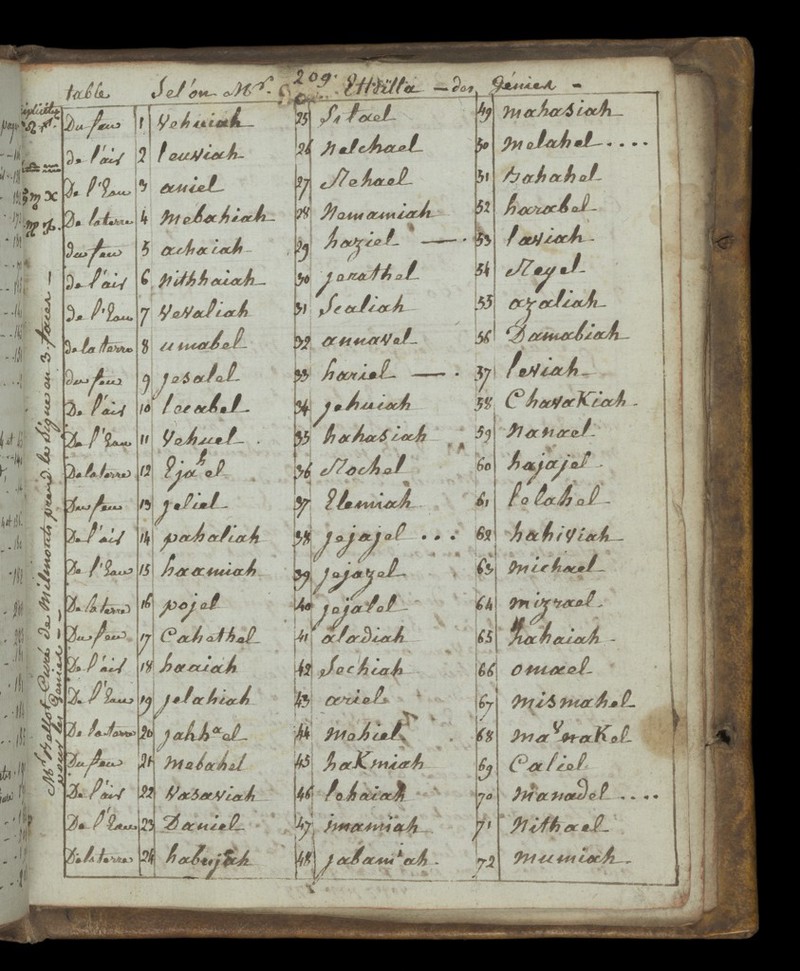 209.
table Selon Mr. Etteilla — des génies —
Du feu 1 Vehuiah 25 Sitael 49 mahasiah
de l'air 2 leuviah 26 Nelchael 50 melahel....
De l'Eau 3 aniel 27 Rehael 51 Bahahel
De la terre 4 Mebahiah 28 Nemamiah 52 harabel
du feu 5 achaiah 29 haziel —. 53 laviah
de l'air 6 Nithhaiah 30 jerathel 54 Reyel
de l'Eau 7 Vevaliah 31 Sealiah 55 azaliah
de la terre 8 umabel 32 annavel 56 Damabiah
du feu 9 jesalel 33 hariel —. 57 leviah
De l'air 10 lecabel 34 jehuiah 58 ChavaKiah
De l'Eau 11 Vehuel 35 hahasiah 59 Nanael
De la terre 12 Ejahel 36 Rochel 60 hajajel
Du feu 13 jeliel 37 Elemiah 61 lelahel
De l'air 14 pahaliah 38 jejajel ... 62 hahiviah
De l'Eau 15 haamiah 39 jejazel 63 michael
De la terre 16 pojel 40 jejalel 64 mizrael
Du feu 17 Cahethel 41 aladiah 65 hahaiah
De l'air 18 haaiah 42 Sechiah 66 omael
De l'Eau 19 jelahiah 43 ariel 67 mismahel
De la terre 20 jahhael 44 mehiel 68 mavaKel
Du feu 21 mebahel 45 haKmiah 69 Caliel
De l'air 22 Vasaviah 46 lehaiah 70 Manadel....
De l'Eau 23 Daniel 47 imamiah 71 Nithael
De la terre 24 habujah 48 jabamiah. 72 mumiah.
Mr. Curé de prend le Signe en 3 faces —
pour les Genies —